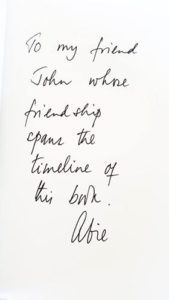 To my friend
John whose
friendship
spans the
timeline of
this book.
Abie